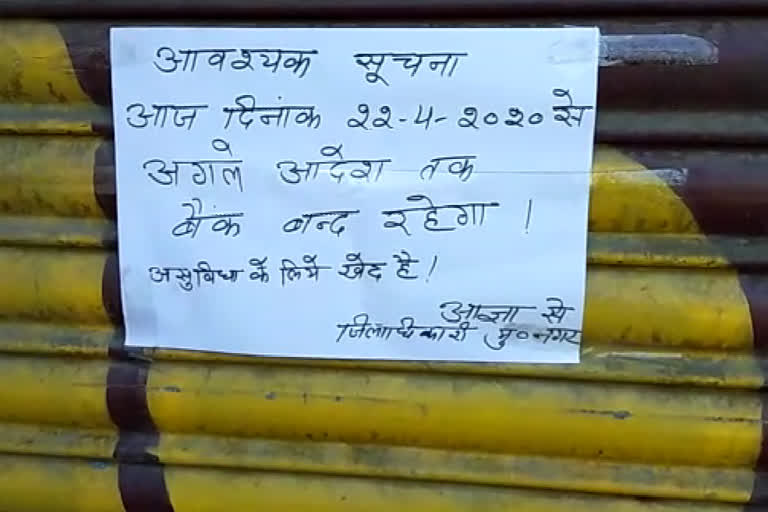 आवश्यक सूचना
आज दिनांक २२-५-२०२० से
अगले आदेश तक
बैंक बन्द रहेगा !
असुविधा के लिये खेद है !
आज्ञा से
जिलाधिकारी मु०नगर